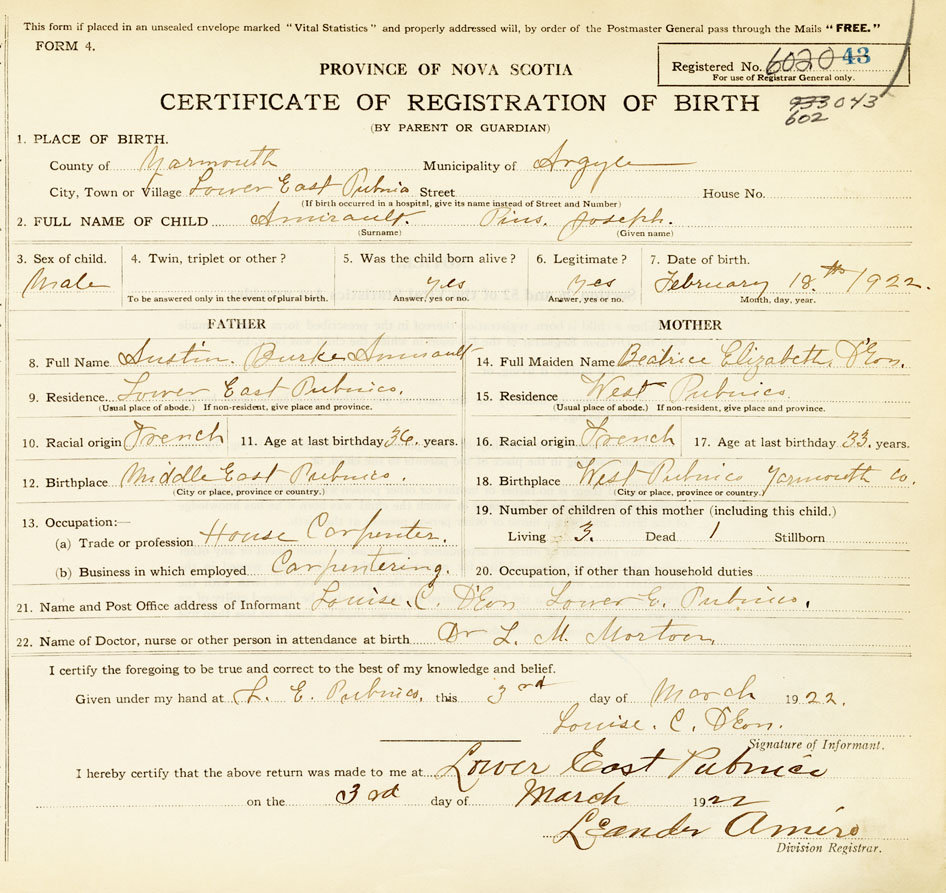 This form if placed in an unsealed envelope marked "Vital Statistics" and properly addressed will, by order of the Postmaster General pass through the Mails "FREE."
FORM 4.
Registered No. 6020 43
For use of Registrar General only.
PROVINCE OF NOVA SCOTIA
CERTIFICATE OF REGISTRATION OF BIRTH 933 043
602
(BY PARENT OR GUARDIAN)
1. PLACE OF BIRTH.
County of Yarmouth Municipality of Argyle
City, Town or Village Lower East Pubnico Street House No.
(If birth occurred in a hospital, give its name instead of Street and Number)
2. FULL NAME OF CHILD Amirault. Pius. Joseph.
(Surname) (Given name)
3. Sex of child. 4. Twin, triplet or other? 5. Was the child born alive? 6. Legitimate? 7. Date of birth.
Male yes yes February 18th 1922.
To be answered only in the event of plural birth. Answer, yes or no. Answer, yes or no. Month, day, year.
FATHER MOTHER
8. Full Name Austin. Burke Amirault 14. Full Maiden Name Beatrice Elizabeth D'Eon.
9. Residence Lower East Pubnico. 15. Residence West Pubnico.
(Usual place of abode.) If non-resident, give place and province. (Usual place of abode.) If non-resident, give place and province.
10. Racial origin French 11. Age at last birthday 36. years. 16. Racial origin French 17. Age at last birthday 33. years.
12. Birthplace Middle East Pubnico. 18. Birthplace West Pubnico Yarmouth Co.
(City or place, province or country.) (City or place, province or country.)
13. Occupation:— 19. Number of children of this mother (including this child.)
(a) Trade or profession House Carpenter. Living 3. Dead 1 Stillborn
(b) Business in which employed Carpentering. 20. Occupation, if other than household duties
21. Name and Post Office address of Informant Louise. C. D'Eon Lower E. Pubnico.
22. Name of Doctor, nurse or other person in attendance at birth Dr L. M. Morton
I certify the foregoing to be true and correct to the best of my knowledge and belief.
Given under my hand at L. E. Pubnico, this 3rd day of March 1922.
Louise. C. D'Eon.
Signature of Informant.
I hereby certify that the above return was made to me at Lower East Pubnico
on the 3rd day of March 1922
Leander Amiro
Division Registrar.